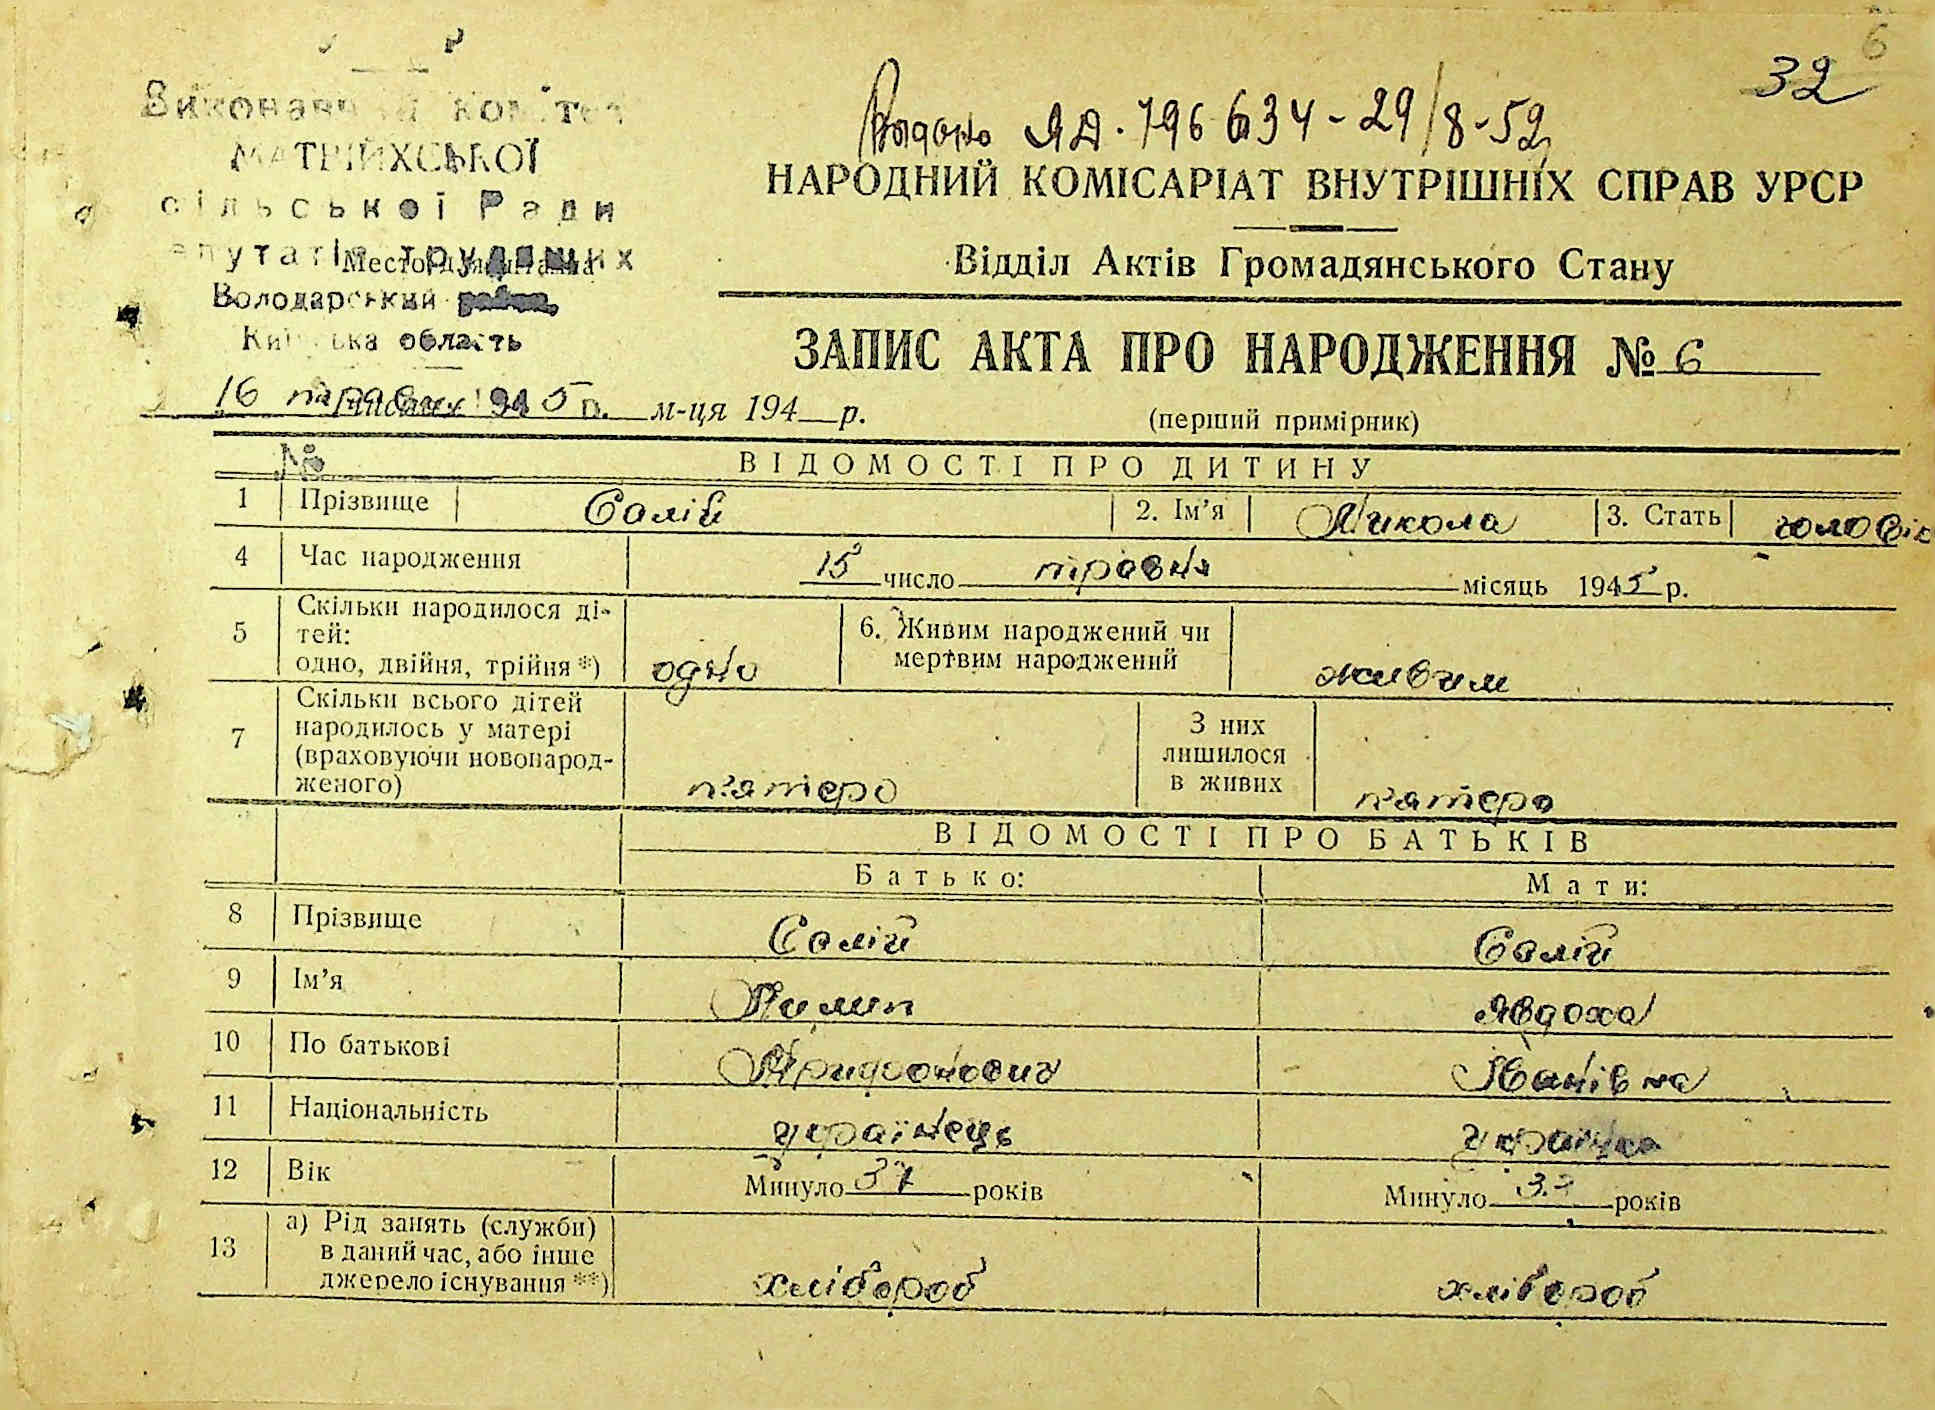 6
32
Видано ЯА. 796634 - 29/8-52
Виконавчий комітет
МАТРІЙХСЬКОЇ
сільської Ради
депутатів трудящих
Володарський район
Київська область
НАРОДНИЙ КОМІСАРІАТ ВНУТРІШНІХ СПРАВ УРСР
Відділ Актів Громадянського Стану
ЗАПИС АКТА ПРО НАРОДЖЕННЯ № 6
16 травня 1945 р. м-ця 194 р.
(перший примірник)
№
ВІДОМОСТІ ПРО ДИТИНУ
1 Прізвище Салій 2. Ім’я Микола 3. Стать чоловік
4 Час народження 15 число травня місяць 1945 р.
5 Скільки народилося ді-
тей:
одно, двійня, трійня *) одно
6. Живим народжений чи
мертвим народжений живим
7 Скільки всього дітей
народилось у матері
(враховуючи новонарод-
женого) п'ятеро
З них
лишилося
в живих п'ятеро
ВІДОМОСТІ ПРО БАТЬКІВ
Батько: Мати:
8 Прізвище Салій Салій
9 Ім’я Пилип Явдоха
10 По батькові Спиридонович Іванівна
11 Національність українець українка
12 Вік Минуло 37 років Минуло років
13 а) Рід занять (служби)
в даний час, або інше
джерело існування **) хлібороб хлібороб